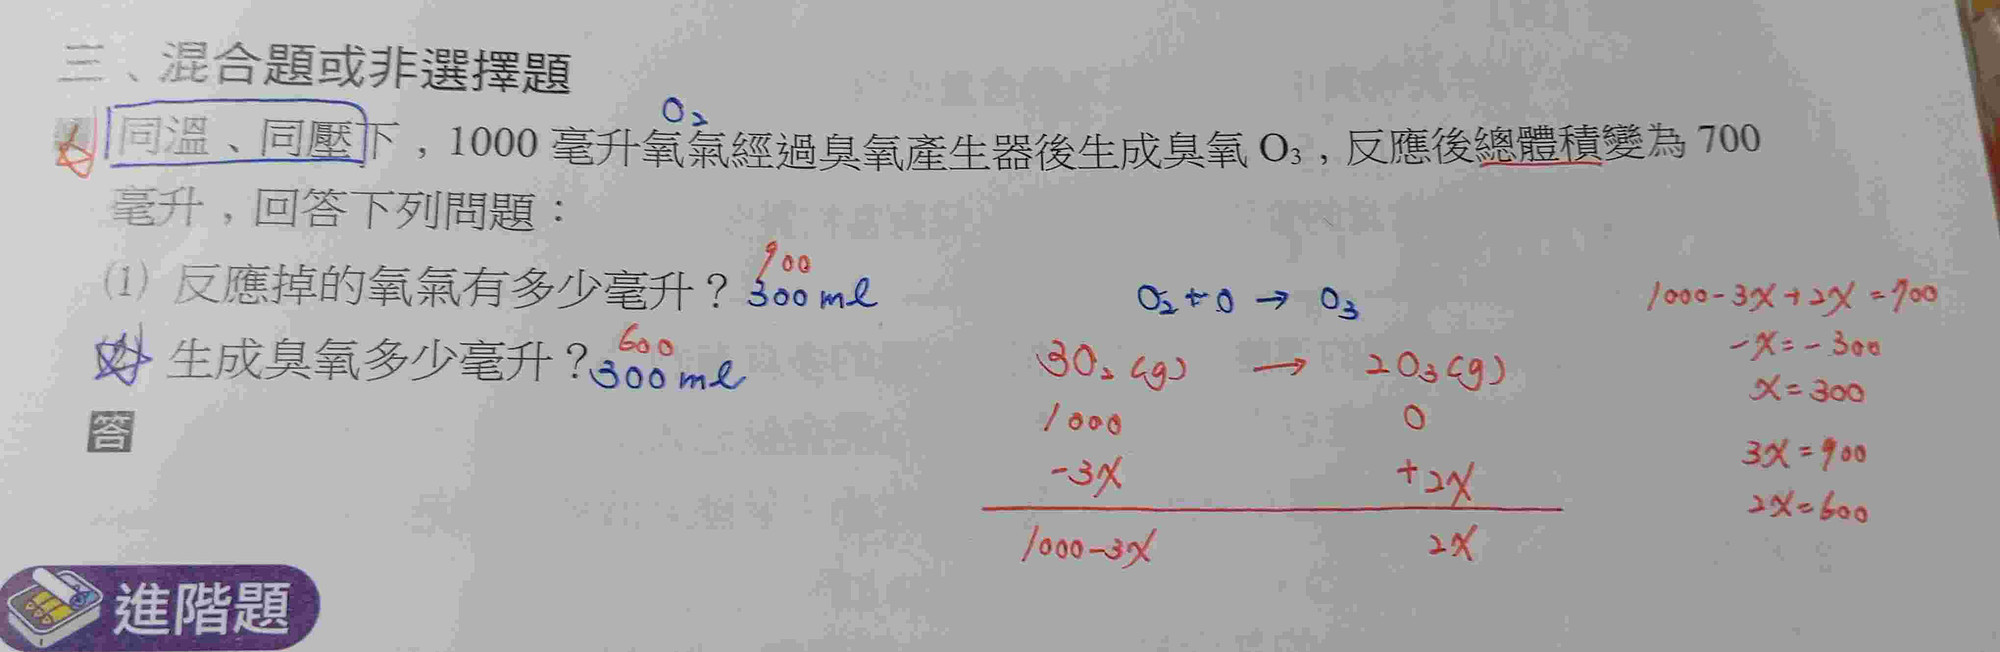 三、混合題或非選擇題
O₂
同溫、同壓下，1000 毫升氧氣經過臭氧產生器後生成臭氧 O₃，反應後總體積變為 700
毫升，回答下列問題：
900
(1) 反應掉的氧氣有多少毫升？300 ml
600
生成臭氧多少毫升？300 ml
答
O₂ + O → O₃
3O₂(g) → 2O₃(g)
1000 0
-3x +2x
1000-3x 2x
1000-3x+2x=700
-x=-300
x=300
3x=900
2x=600
進階題